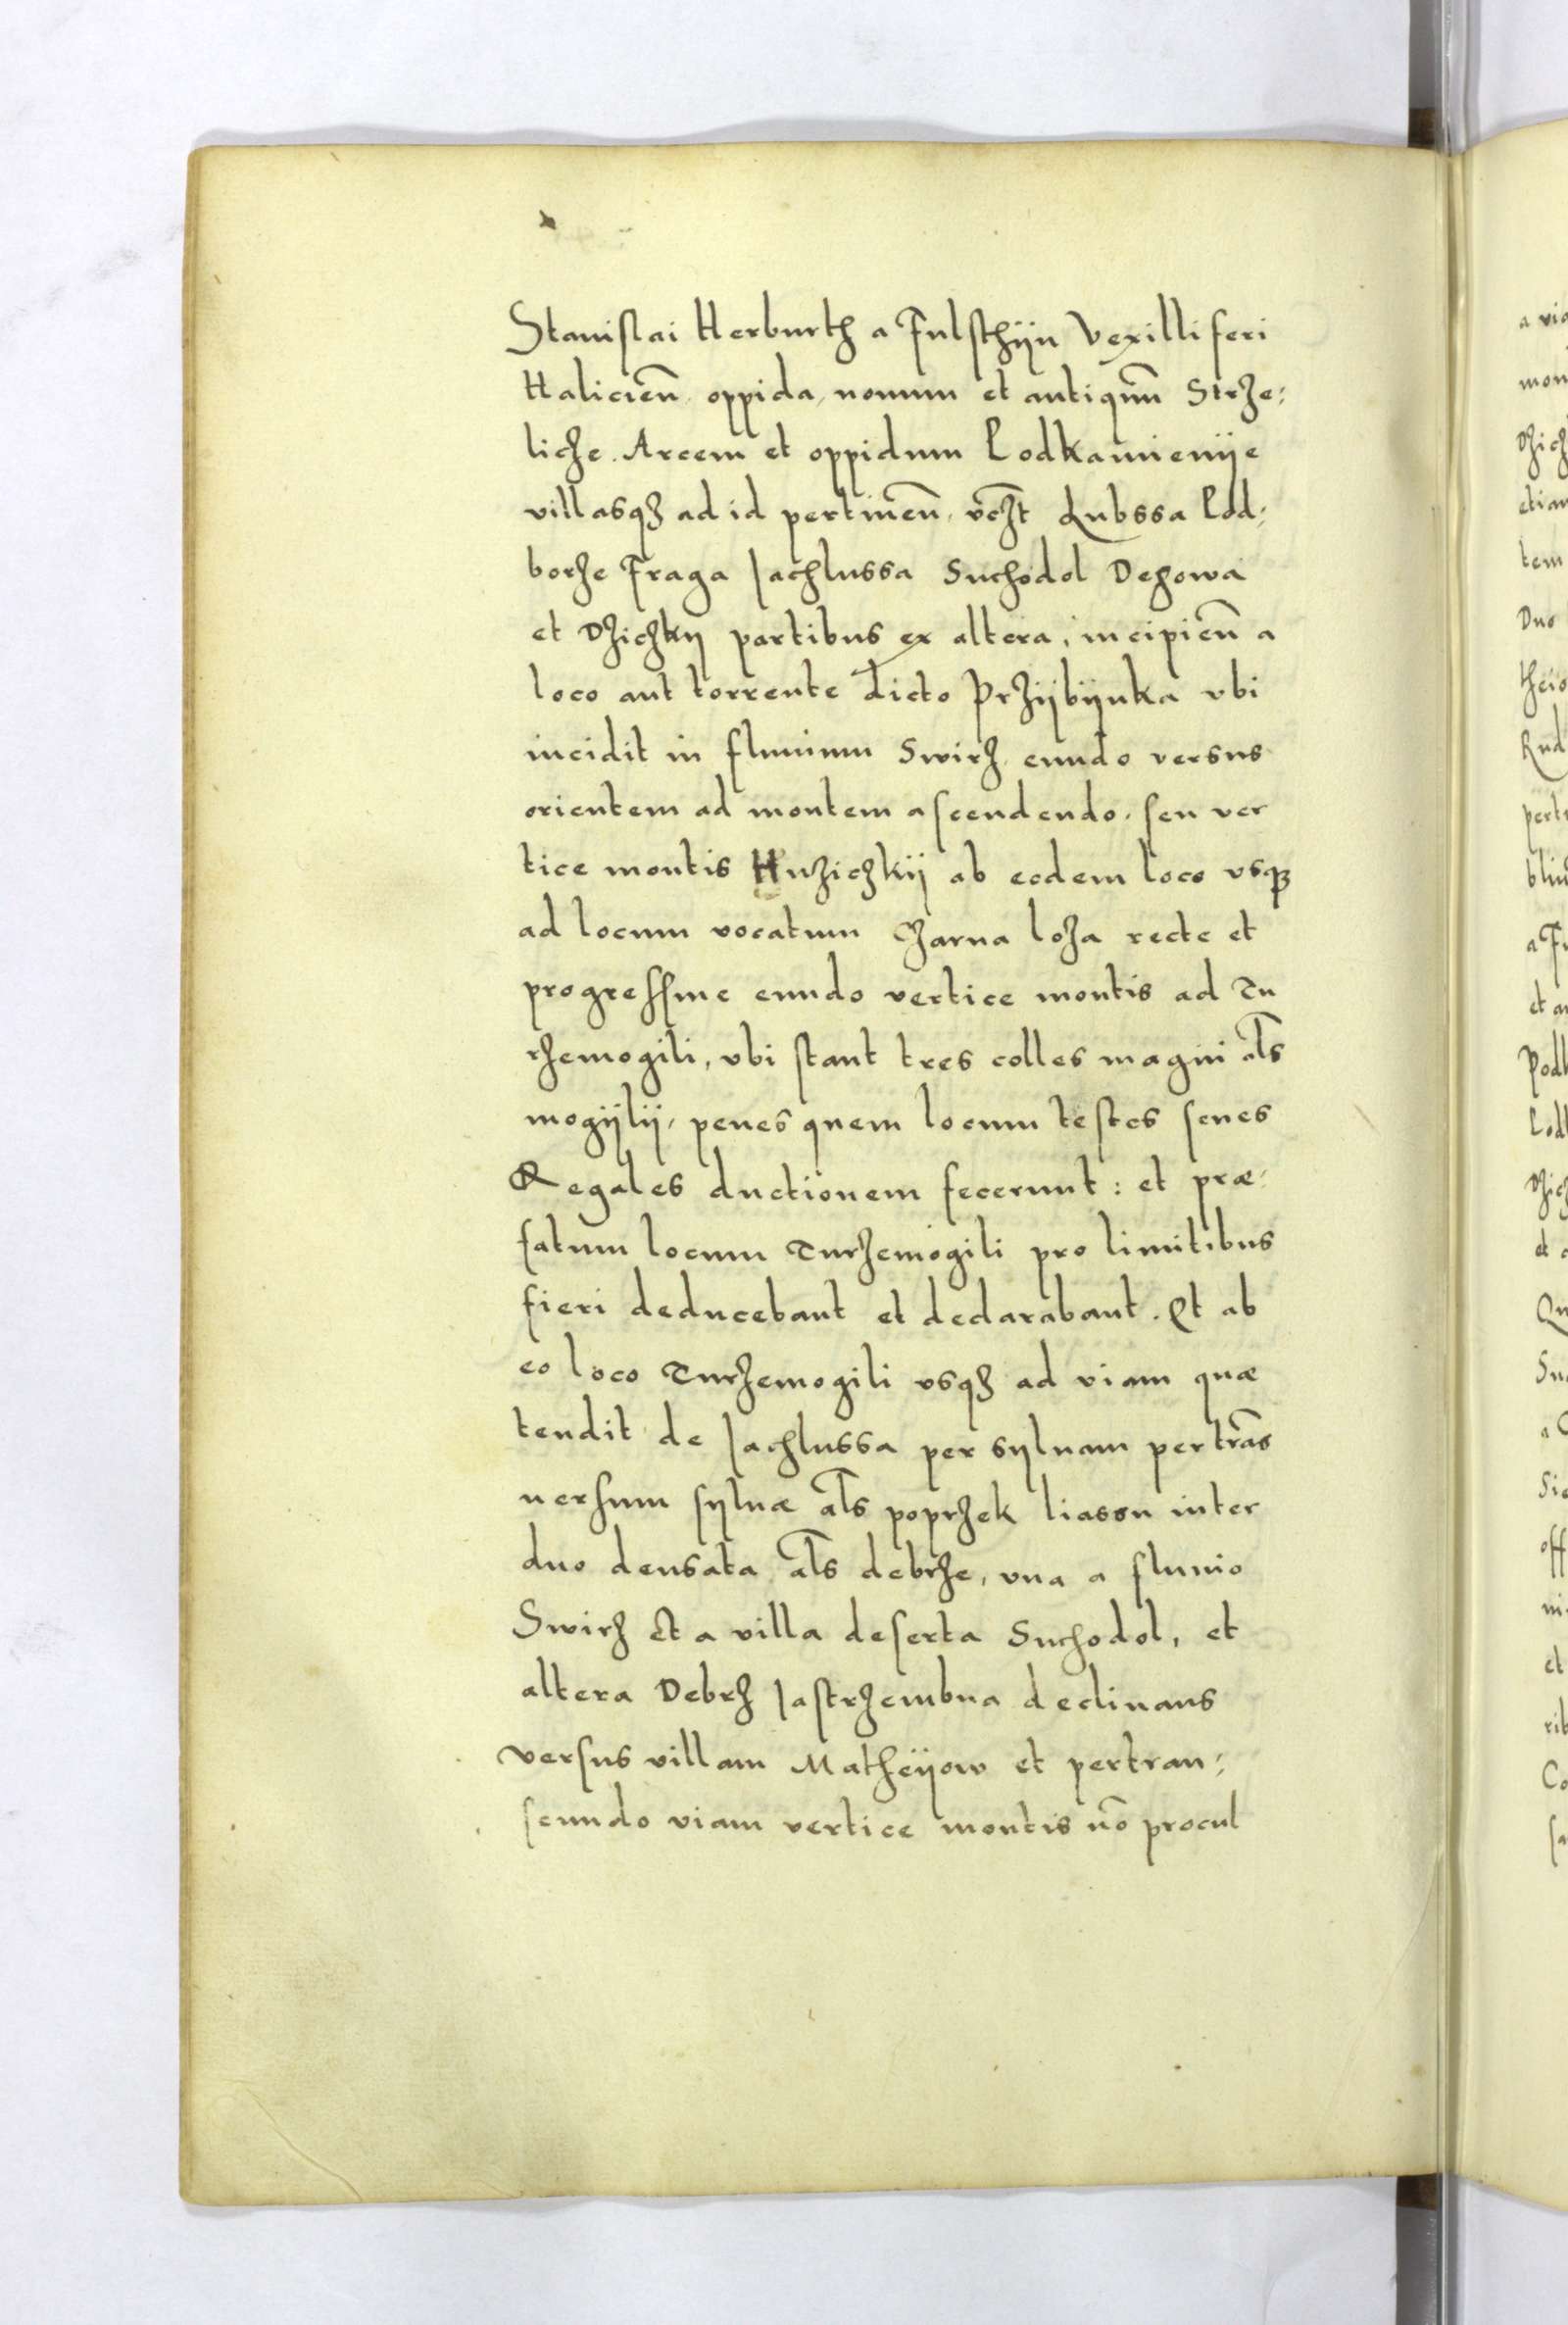 Stanislai Herburth a Fulsthijn Vexilliferi
Halicień. oppida, nouum et antiquū Strze:
licze. Arcem et oppidum Podkamienije
villasqȝ ad id pertineń. vczt Lubssa Pod:
borze Fraga Jachlussa Suchodol Dehowa
et Dziczky partibus ex altera, incipień a
loco aut torrente dicto Przijbijnka vbi
incidit in fluuium Swirz. eundo versus
orientem ad montem ascendendo. seu ver
tice montis Huziczkij ab eodem loco vsqȝ
ad locum vocatum Czarna loza recte et
progressiue eundo vertice montis ad Tu
rzemogili, vbi stant tres colles magni als
mogijlij, penes quem locum testes senes
Regales ductionem fecerunt: et præ-
fatum locum Turzemogili pro limitibus
fieri deducebant et declarabant. Et ab
eo loco Turzemogili vsqȝ ad viam quæ
tendit de Jachlussa per syluam per trās
uersum syluæ als poprzek liasou inter
duo densata als debrze, vna a fluuio
Swirz et a villa deserta Suchodol, et
altera Debrz Jastrzembna declinans
versus villam Matheijow et pertran:
seundo viam vertice montis nō procul